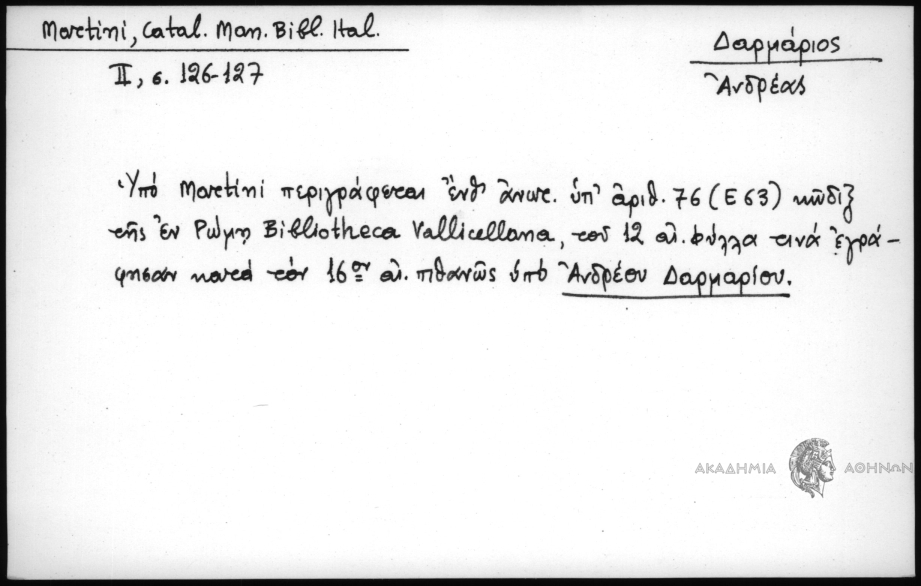 Martini, Catal. Man. Bibl. Ital.
II, σ. 126-127
Δαρμάριος
Ἀνδρέας
Ὑπό Martini περιγράφεται ἔνθ' ἄνωτ. ὑπ' ἀριθ. 76 (E 63) κῶδιξ
τῆς ἐν Ρώμῃ Bibliotheca Vallicellana, τοῦ 12 αἰ. φύλλα τινά ἐγρά-
φησαν κατά τόν 16ον αἰ. πιθανῶς ὑπό Ἀνδρέου Δαρμαρίου.
ΑΚΑΔΗΜΙΑ ΑΘΗΝΩΝ